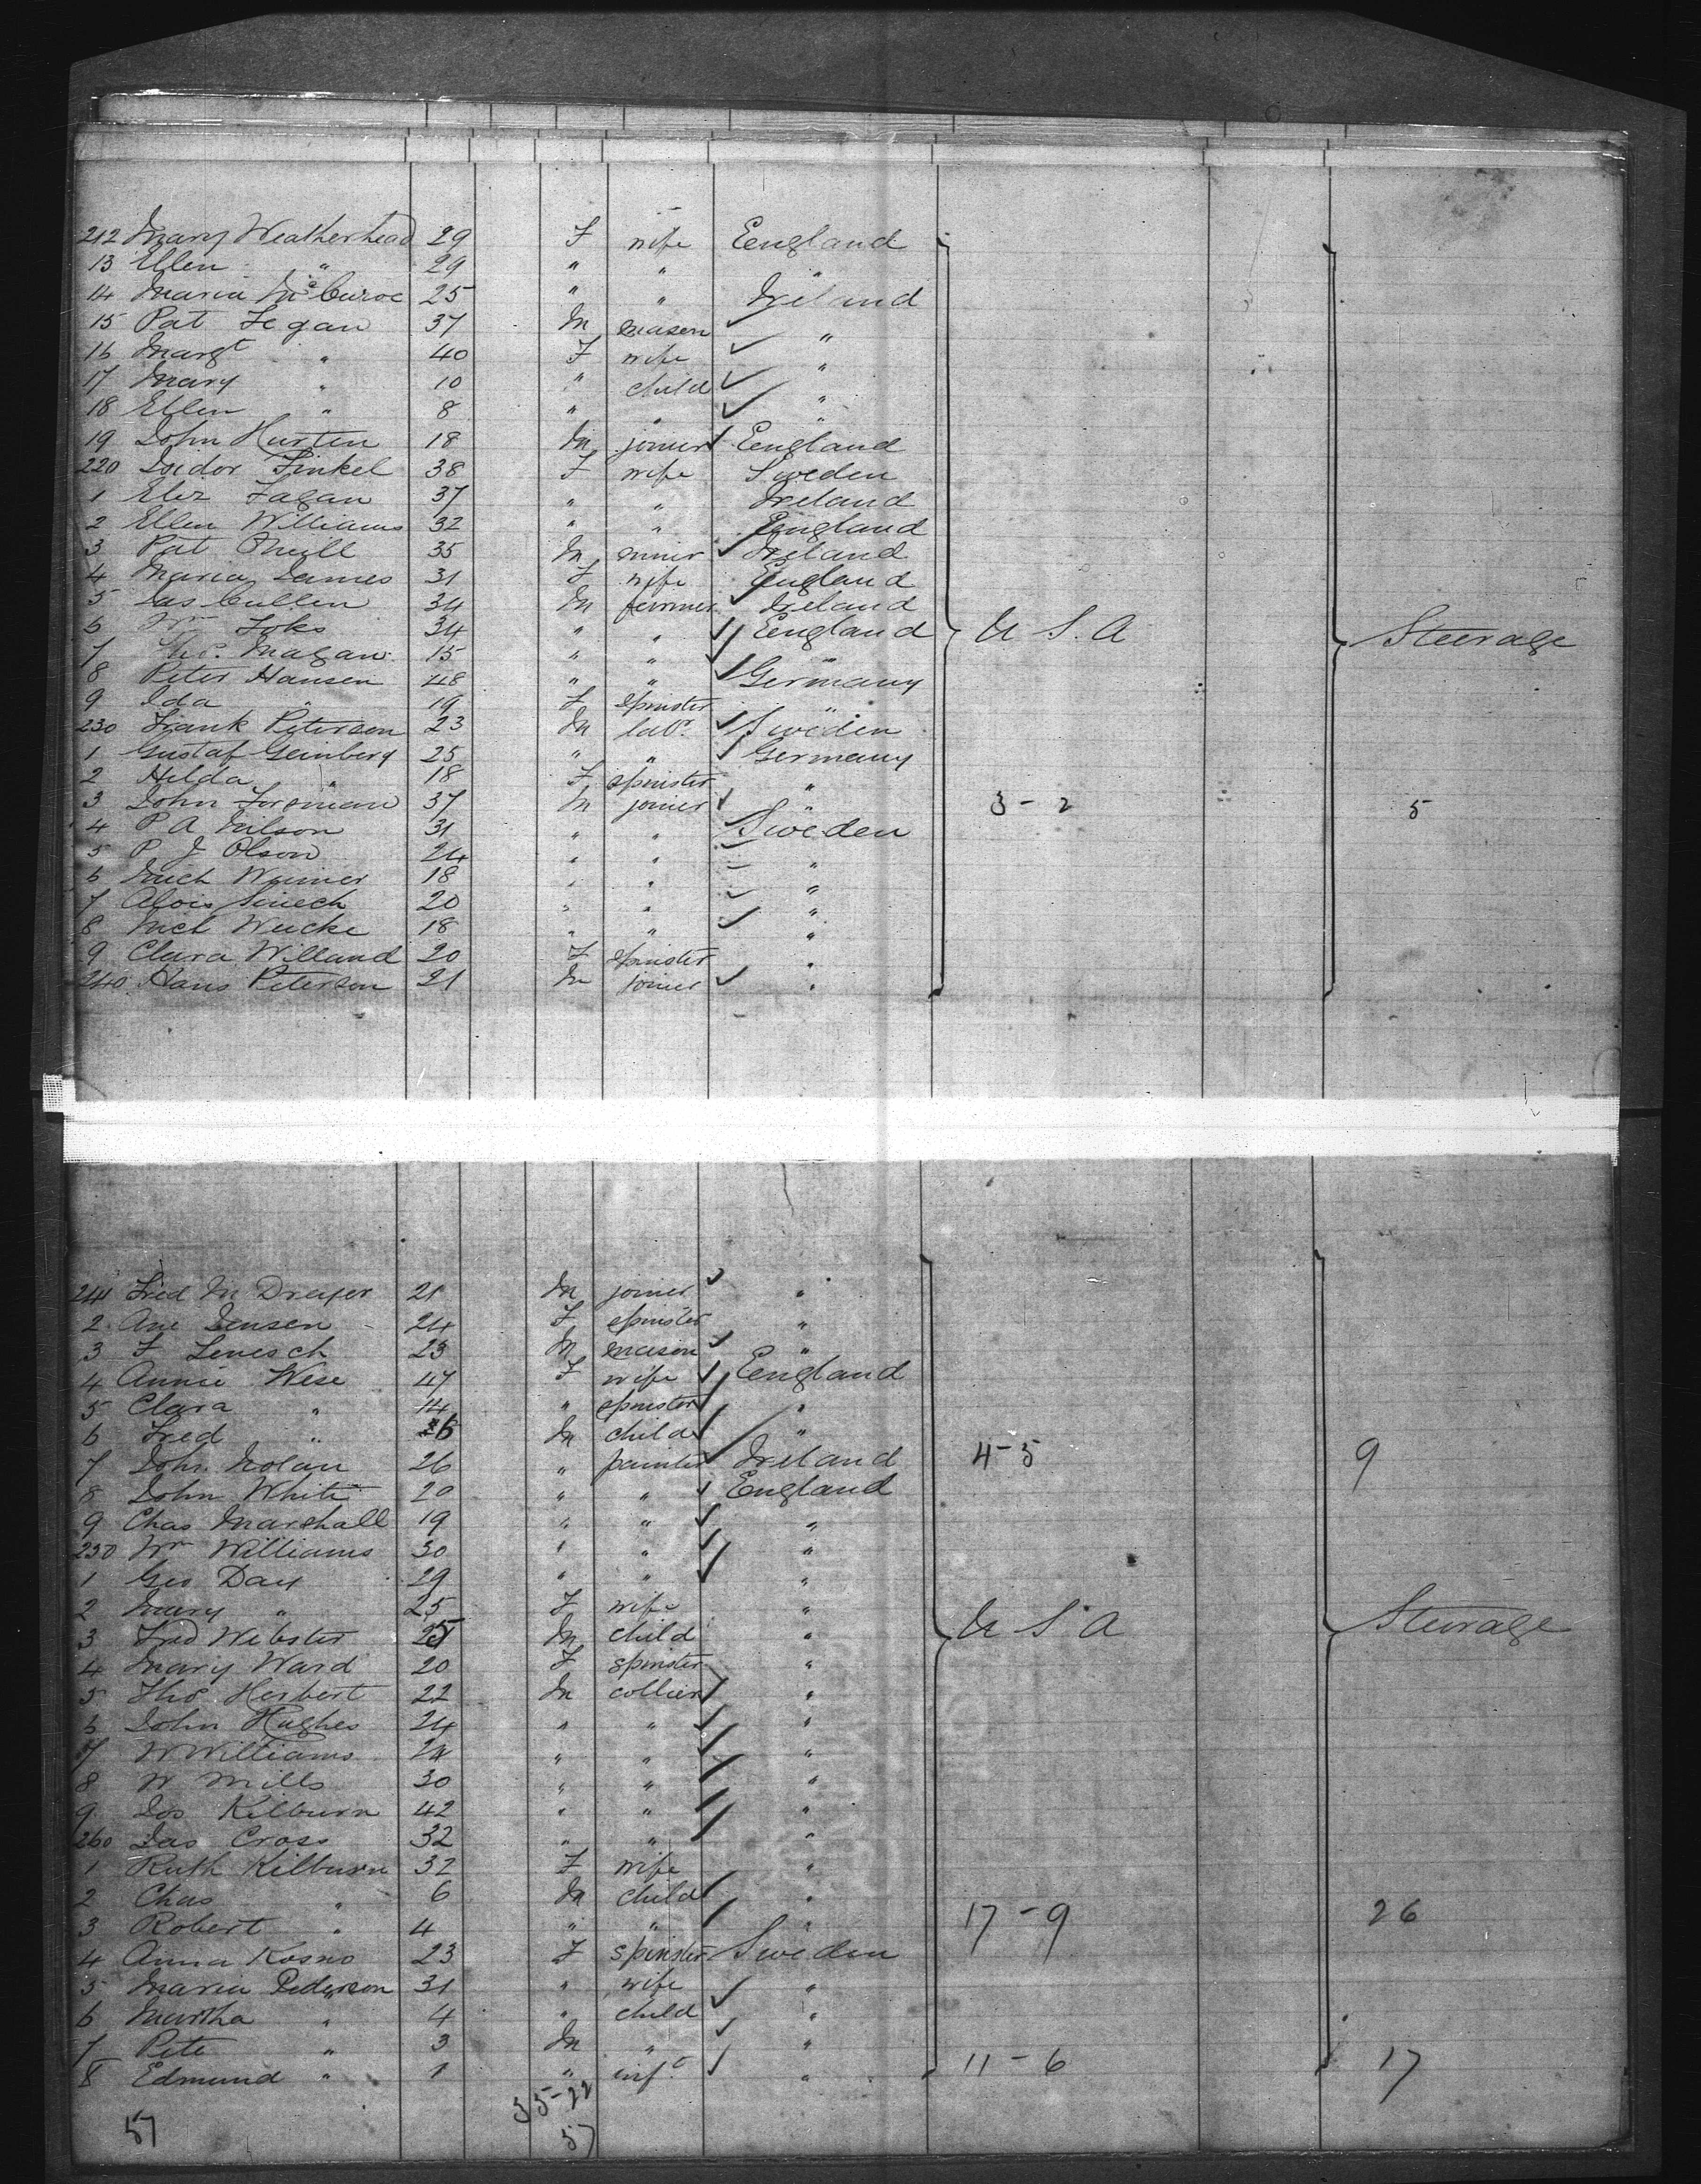 212 Mary Weatherhead 29 F wife England
13 Ellen " 29 " " "
14 Maria 25 " " Ireland
15 Pat Fegan 37 M mason "
16 Margt " 40 F wife "
17 Mary " 10 " child "
18 Ellen " 8 " " "
19 John Hurten 18 M joiner England
220 Isidor Finkel 38 F wife Sweden
1 Eliz Fagan 37 " " Ireland
2 Ellen Williams 32 " " England
3 Pat Oneill 35 M miner Ireland
4 Maria James 31 F wife England
5 Jas Cullen 34 M farmer Ireland
6 Wm Foks 34 " " England U S. A Steerage
7 Tho. Magan 15 " " "
8 Peter Hansen 48 " " Germany
9 Ida " 19 F spinster "
230 Frank Peterson 23 M labr. Sweden
1 Gustaf Geinberg 25 " " Germany
2 Hilda " 18 F spinster "
3 John Forsman 37 M joiner " 3-2 5
4 P A Nilson 31 " " Sweden
5 P J Olson 24 " " "
6 Mich Weimer 18 " " "
7 Alois 20 " " "
8 Mich Weicke 18 " " "
9 Clara Willand 20 F spinster "
240 Hans Peterson 21 M joiner "
241 Fred M Dreyer 21 M joiner "
2 Ane Jensen 24 F spinster "
3 F Lenesch 23 M mason "
4 Annie Wise 47 F wife England
5 Clara " 14 " spinster "
6 Fred " M child "
7 John Nolan 26 " painter Ireland 4-5 9
8 John White 20 " " England
9 Chas Marshall 19 " " "
250 Wm Williams 30 " " "
1 Geo Day 29 " " "
2 Mary " 25 F wife "
3 Fred Webster M child " U S A Steerage
4 Mary Ward 20 F spinster "
5 Tho Herbert 22 M collier "
6 John Hughes 24 " " "
7 W Williams 24 " " "
8 W Mills 30 " " "
9 Jos Kilburn 42 " " "
260 Jas Cross 32 " " "
1 Ruth Kilburn 32 F wife "
2 Chas " 6 M child " 17-9 26
3 Robert " 4 " " "
4 Anna Kosno 23 F spinster Sweden
5 Maria Pederson 31 " wife "
6 Martha " 4 " child "
7 Pete " 3 M " "
8 Edmund " 1 " inft. " 11-6 17
35-22
57 57